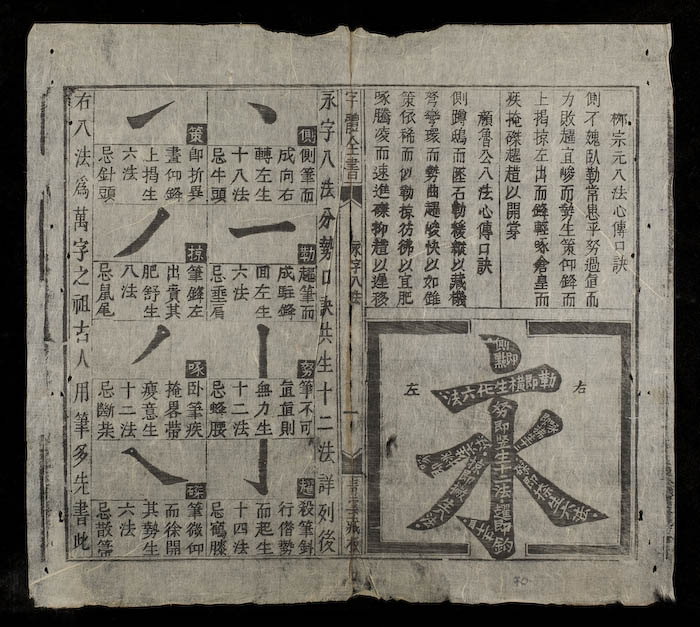 柳宗元八法心傳口訣
側不貌臥勒常患平努過直而
力敗趯宜峻而勢生策仰鋒而
上揭掠左出而鋒輕啄倉皇而
疾掩磔以開
顏魯公八法心傳口訣
側蹲鴟而墜石勒緩縱以藏機
弩彎環而勢曲趯峻快以如錐
策依稀而似勒掠彷彿以宜肥
啄騰凌而速進磔抑以遲移
右
左
側即點
勒即橫生十六法
努即竪生十二法趯即鈎
字體全書
永字八法
一
永字八法分勢口訣共生十二法詳列後
側
側筆而
成向右
轉左生
十八法
忌牛頭
勒
趯筆而
成駐鋒
回左生
六法
忌垂肩
努
筆不可
直直則
無力生
十二法
忌蜂腰
趯
殺筆斜
行借勢
而起生
十四法
忌鶴膝
策
即折異
畫仰鋒
上揭生
六法
忌針頭
掠
筆鋒左
出貴其
肥舒生
八法
忌鼠尾
啄
臥筆疾
掩畧帶
瘦意生
十二法
忌斷柴
磔
筆微仰
而徐開
其勢生
六法
忌散箒
右八法爲萬字之祖古人用筆多先書此
70